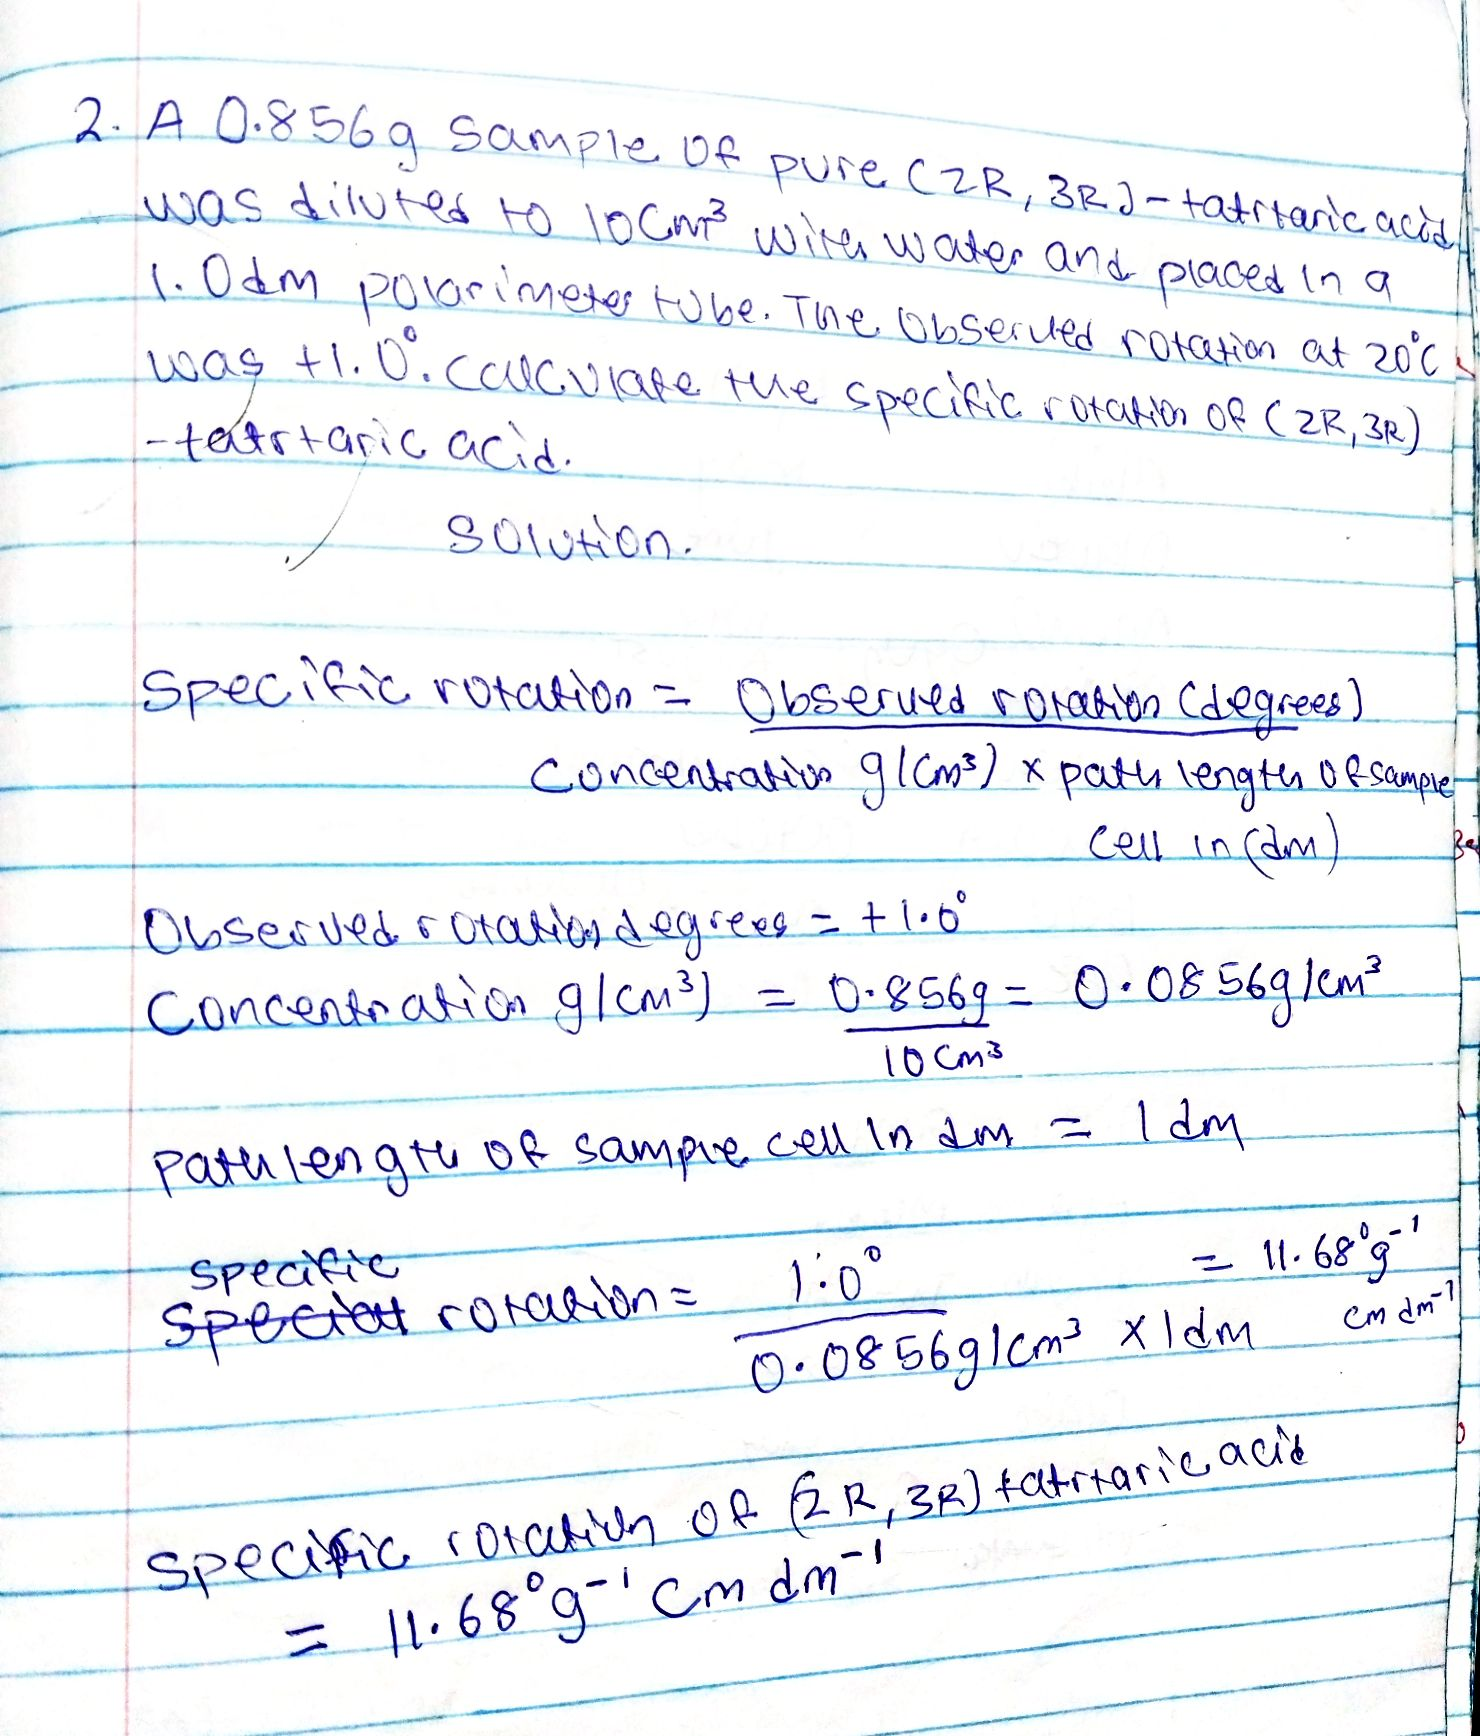 2. A 0.856g sample of pure (2R, 3R)-tatrtaric acid
was diluted to 10cm³ with water and placed in a
1.0dm polarimeter tube. The observed rotation at 20°C
was +1.0°. Calculate the specific rotation of (2R,3R)
-tatrtaric acid.
Solution.
Specific rotation = Observed rotation (degrees)
Concentration g/cm³) x path length of sample
cell in (dm)
Observed rotation degrees = +1.0°
Concentration g/cm³) = 0.856g = 0.0856g/cm³
10cm³
Path length of sample cell in dm = 1dm
specific
rotation = 1.0° = 11.68°g⁻¹
0.0856g/cm³ x 1dm cm dm⁻¹
Specific rotation of (2R,3R) tatrtaric acid
= 11.68°g⁻¹ cm dm⁻¹